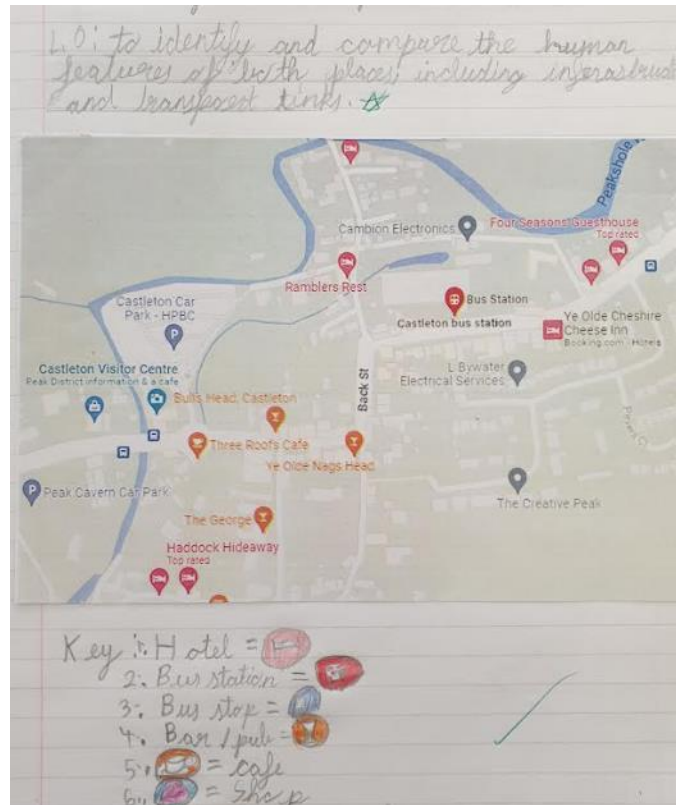 L.O: to identify and compare the human
features of both places including inferastruct
and transport links.
Peakshole
Cambion Electronics
Four Seasons Guesthouse
Top rated
Ramblers Rest
Castleton Car
Park - HPBC
Bus Station
Castleton bus station
Ye Olde Cheshire
Cheese Inn
Booking.com · Hotels
Castleton Visitor Centre
Peak District information & a cafe
L Bywater
Electrical Services
Bulls Head, Castleton
Back St
Three Roofs Cafe
Ye Olde Nags Head
Peak Cavern Car Park
The Creative Peak
The George
Haddock Hideaway
Top rated
Key 1. Hotel =
2. Bus station =
3. Bus stop =
4. Bar / pub =
5. = cafe
6. = Shop